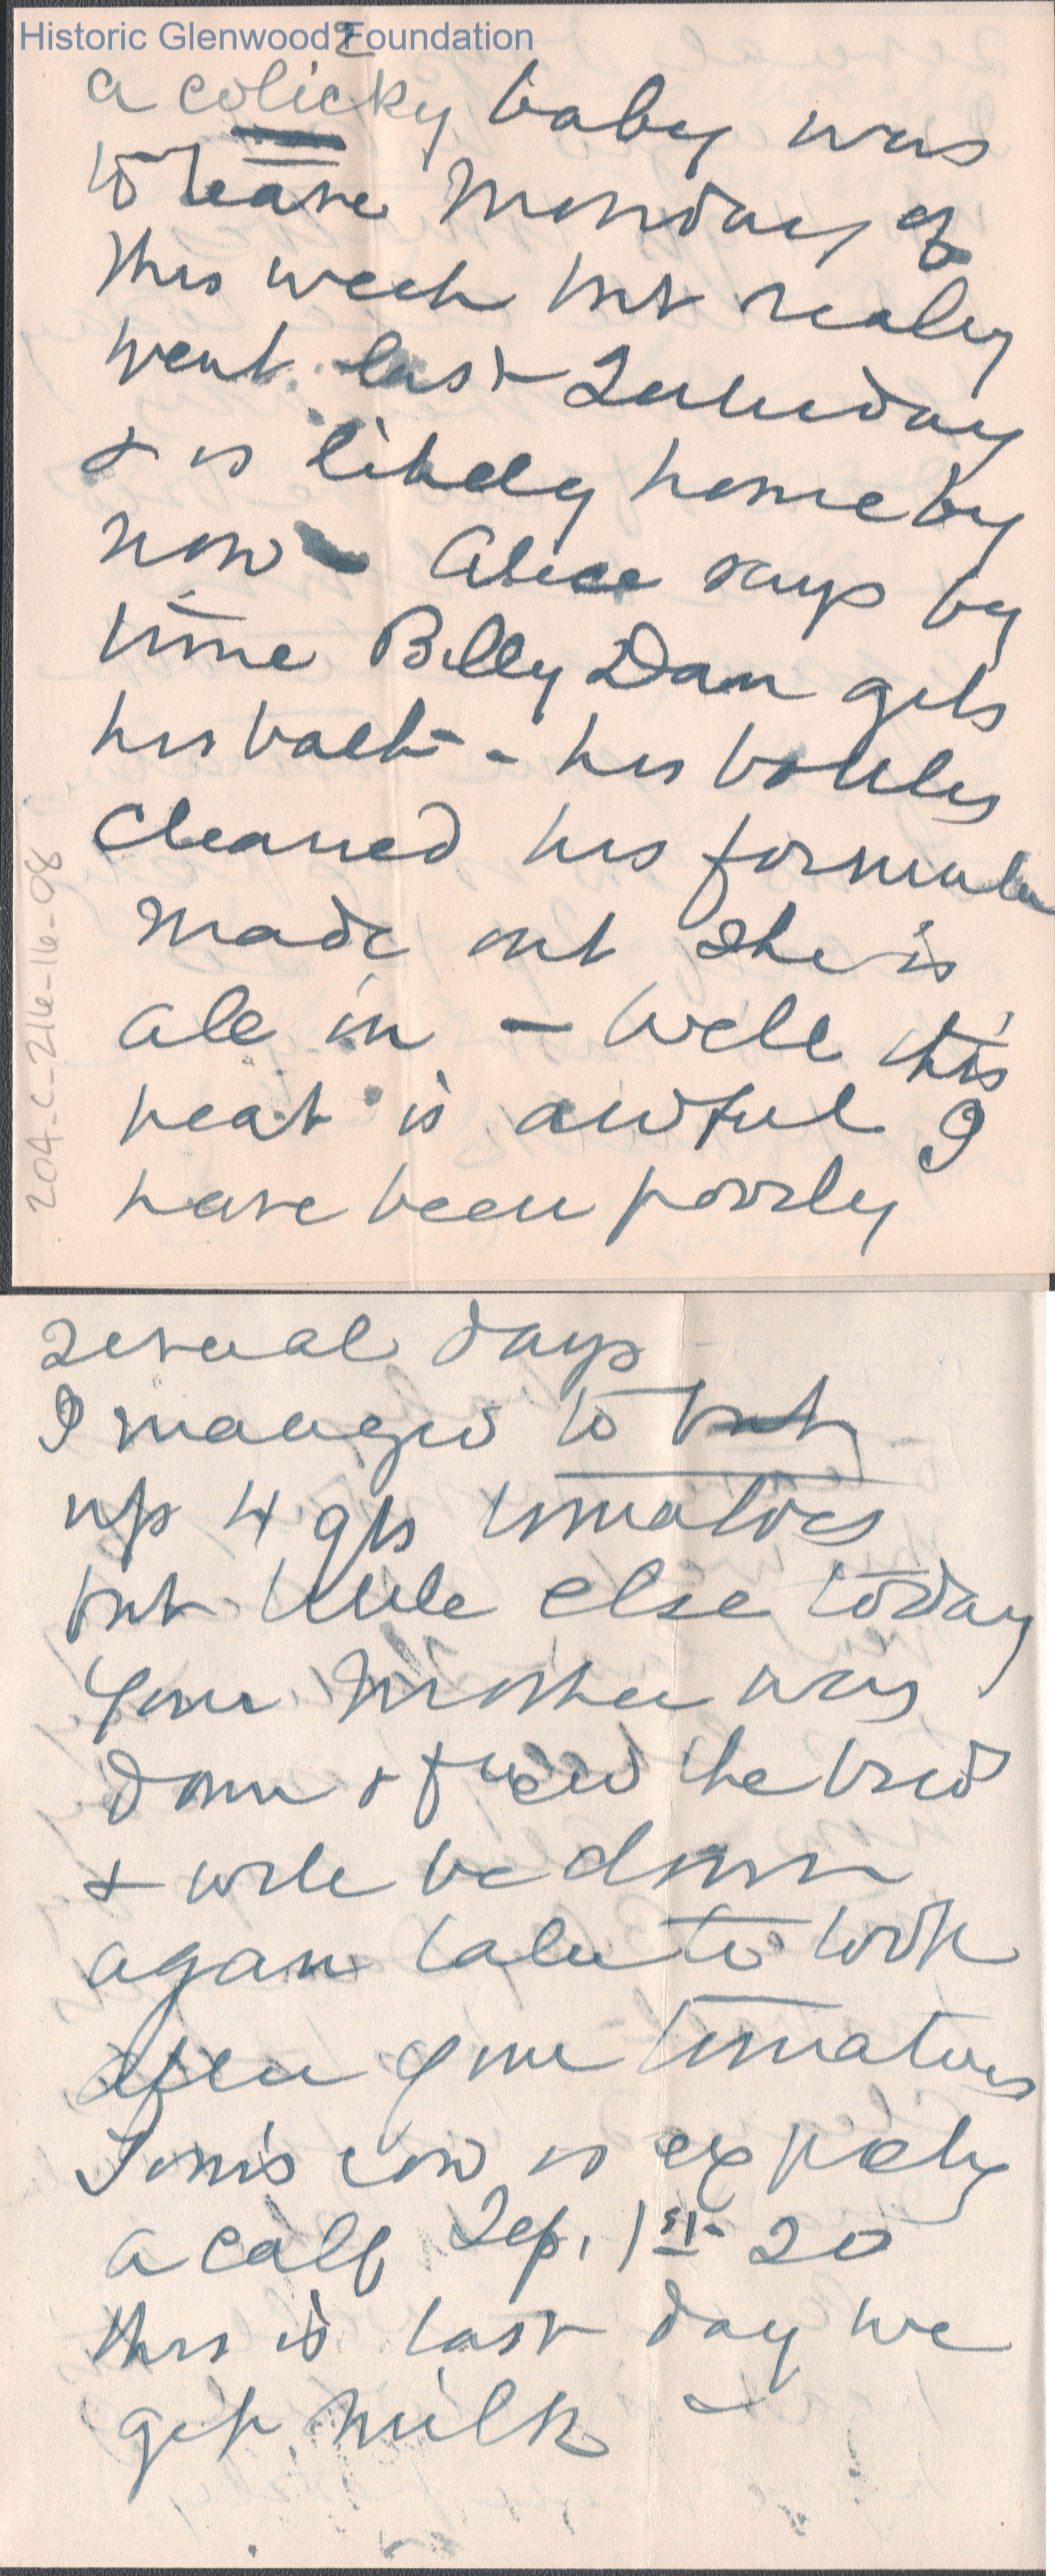 Historic Glenwood Foundation
2
a colicky baby was
to leave Monday of
this week but realy
went last Saturday
& is likely home by
now - Alice says by
time Billy Dan gets
his bath - his bottles
cleaned his formula
made out she is
all in - Well this
heat is awful I
have been poorly
204-C-216-16-08
several days
I managed to put
up 4 qts tomatoes
but little else today
Your Mother was
down & fixed the bed
& will be down
again later to look
after your tomatoes
Tom's cow is expecty
a calf Sep. 1st so
this is last day we
get milk -